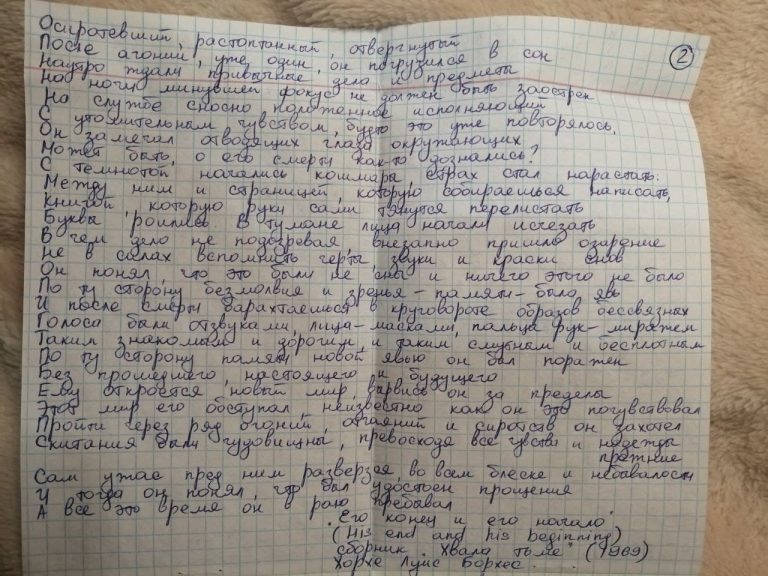 Осиротевший, растоптанный, отвергнутый
②
После агонии, уже один, он погрузился в сон
Наутро ждали привычные дела и предметы
На ночи минувшей фокус не должен быть заострен
На службе сносно положенные исполняющий
С утомительным чувством, будто это уже повторялось,
Он замечал отводящих глаза окружающих
Может быть, о его смерти как-то дознались?
С темнотой начались кошмары, страх стал нарастать:
Между ним и страницей, которую собираешься написать,
Книгой, которую руки сами тянутся перелистать
Буквы роились. В тумане лица начали исчезать
В чем дело не подозревая, внезапно пришло озарение
Не в силах вспомнить черты, звуки и краски снов
Он понял, что это были не сны, и ничего этого не было
По ту сторону безмолвия и зренья - памяти - была явь
И после смерти барахтаешься в круговороте образов бессвязных
Голоса были отзвуками, лица - масками, пальцы рук - миражем
Таким знакомым и дорогим, и таким смутным и бесплотным
По ту сторону памяти новой явью он был поражен
Без прошедшего, настоящего и будущего
Ему откроется новый мир, вырвись он за пределы
Этот мир его обступал, неизвестно как он это почувствовал
Пройти через ряд агоний, отчаяний и сиротств он захотел
Скитания были чудовищны, превосходя все чувства и надежды
прежние
Сам ужас пред ним разверзся, во всем блеске и небывалости
И тогда он понял, что был удостоен прощения
А все это время он в раю пребывал
"Его конец и его начало"
(His end and his beginning)
сборник "Хвала тьме" (1969)
Хорхе Луис Борхес